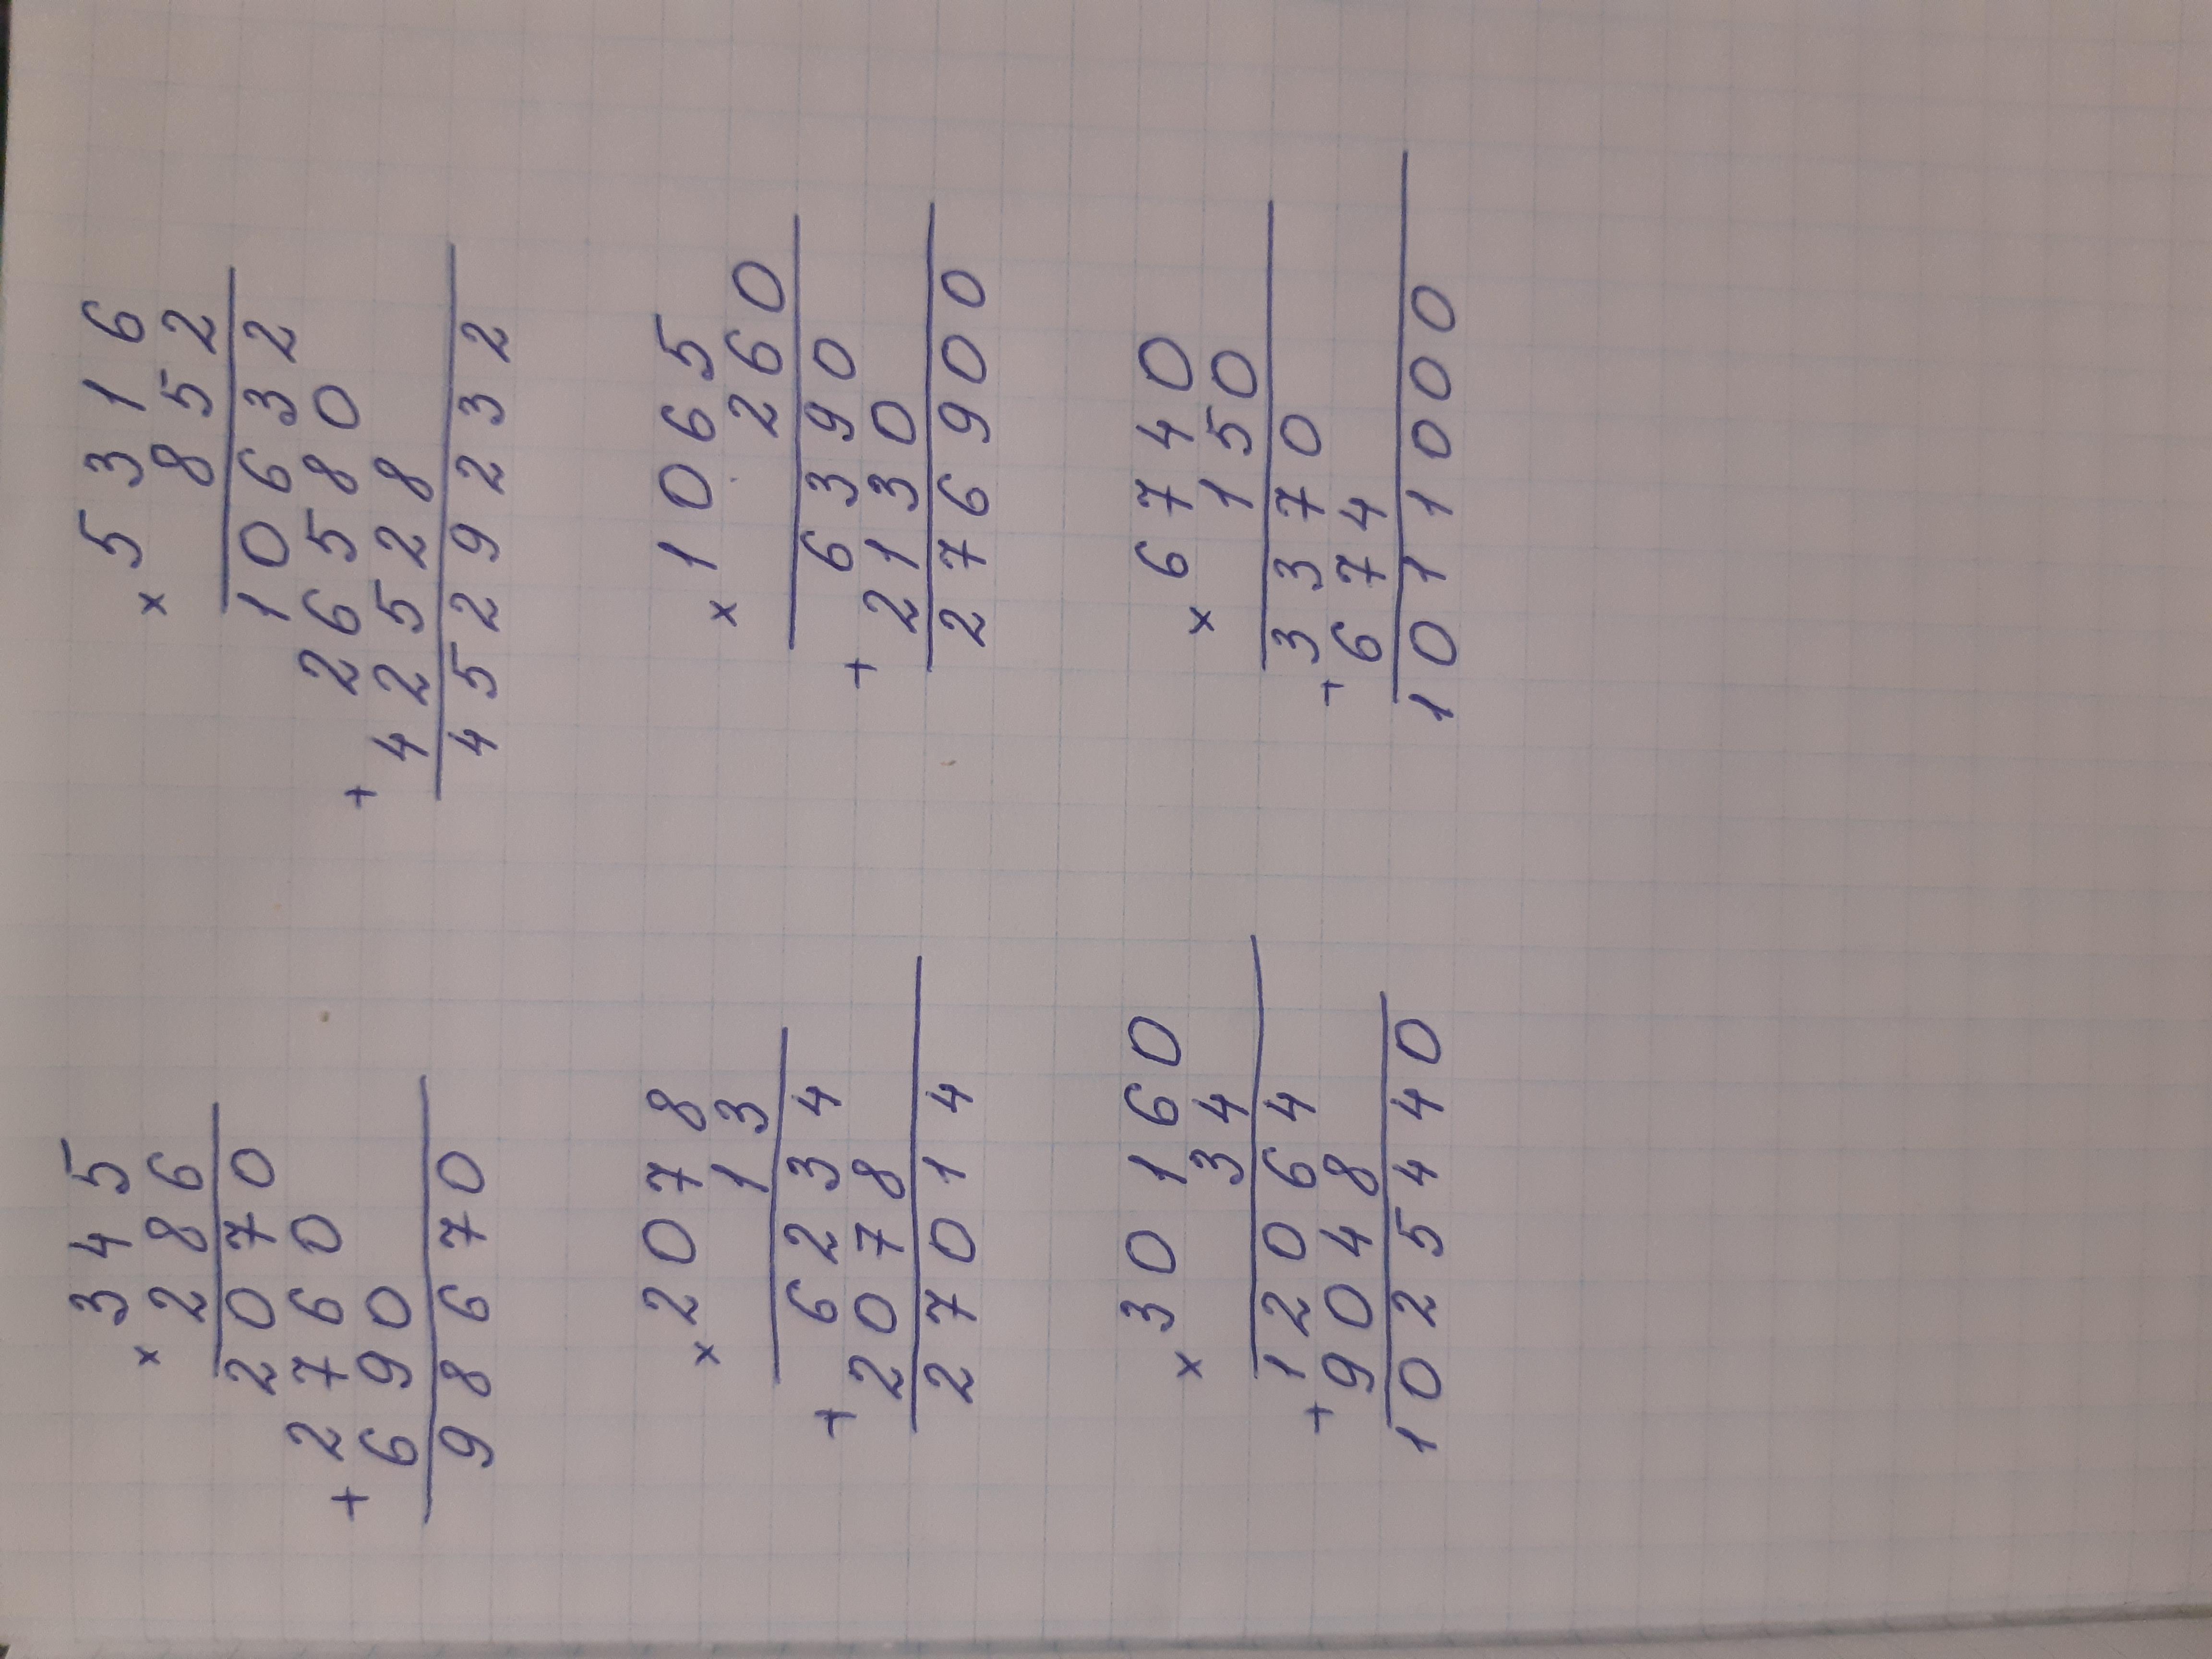 345
×
286
2070
2760
+
690
98670
5316
×
852
10632
26580
+
42528
4529232
2078
×
13
6234
+
2078
27014
1065
×
260
6390
+
2130
276900
30160
×
34
12064
+
9048
1025440
6740
×
150
3370
+
674
1011000